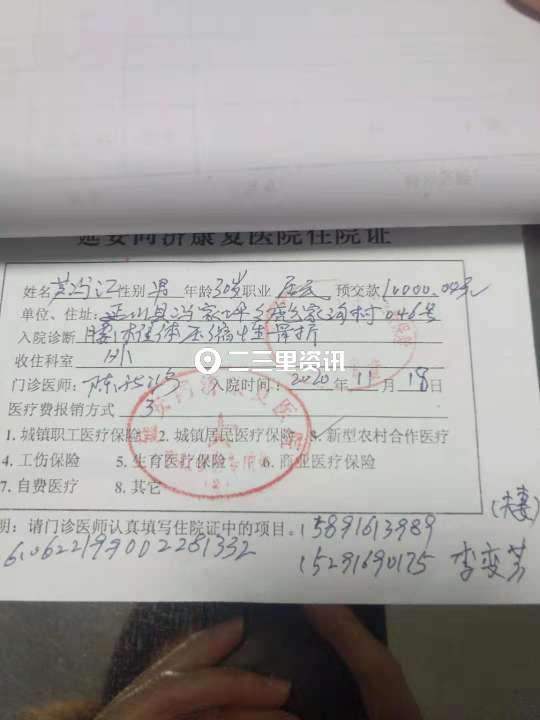 延安同济康复医院住院证
姓名 性别 男 年龄 30岁 职业 居民 预交款 10000.00元
单位、住址: 延川县冯家坪 村046号
入院诊断 腰 椎体压缩性骨折
收住科室 外
门诊医师: 陈 入院时间: 2020年11月18日
医疗费报销方式 3
二三里资讯
1. 城镇职工医疗保险 2. 城镇居民医疗保险 3. 新型农村合作医疗
4. 工伤保险 5. 生育医疗保险 6. 商业医疗保险
7. 自费医疗 8. 其它
明: 请门诊医师认真填写住院证中的项目。15891613989 (夫妻)
15291690175 李变芳